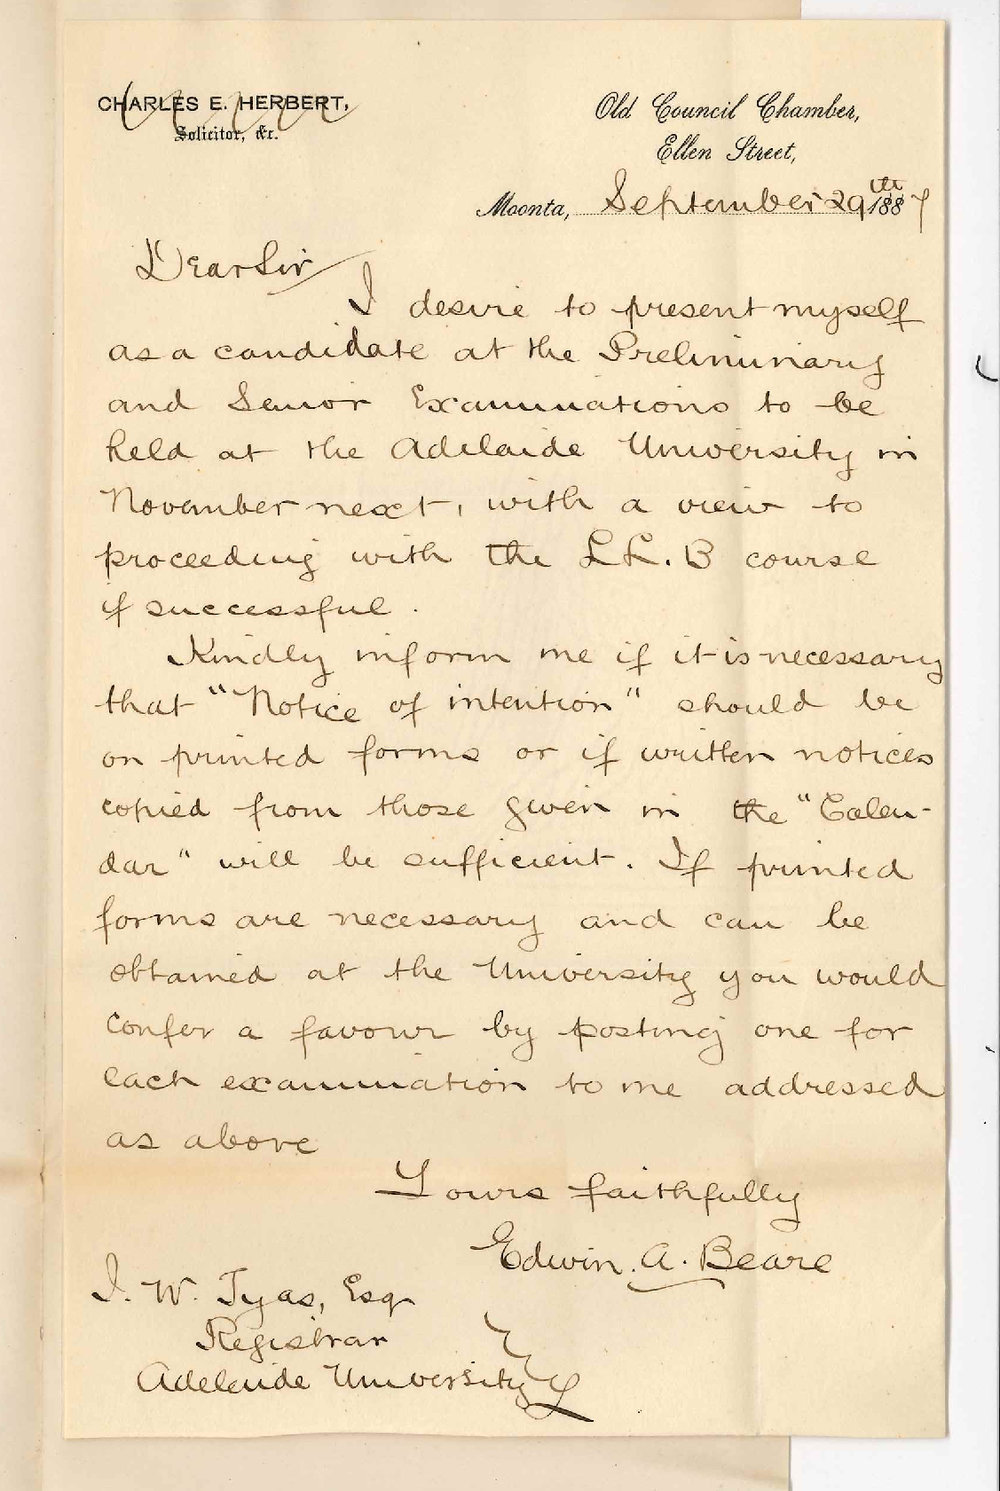 CHARLES E. HERBERT,
Solicitor, &c.
Old Council Chamber,
Ellen Street,
Moonta, September 29th 1887
Dear Sir
I desire to present myself
as a candidate at the Preliminary
and Senior Examinations to be
held at the Adelaide University in
November next, with a view to
proceeding with the LL.B course
if successful.
Kindly inform me if it is necessary
that "Notice of intention" should be
on printed forms or if written notices
copied from those given in the "Calen-
dar" will be sufficient. If printed
forms are necessary and can be
obtained at the University you would
confer a favour by posting one for
each examination to me addressed
as above
Yours faithfully
Edwin. A. Beare
J. W. Tyas, Esq
Registrar
Adelaide University